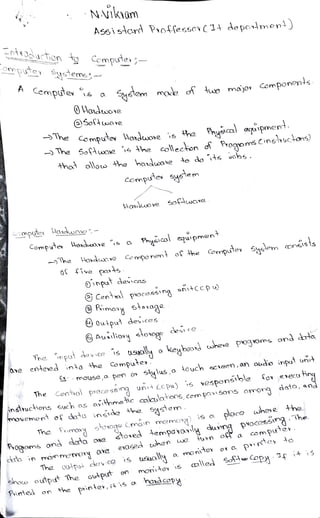 N.Vikram
Assistard Proffessor (It department)
Introduction to Computer :-
Computer Systems :-
A Computer is a System made of two major Components.
① Hardware
② Software
→ The Computer Hardware is the Physical equipment.
→ The Software is the collection of Programs (instructions)
that allow the hardware to do its jobs.
Computer system
Hardware Software
Computer Hardware :-
Computer Hardware is a Physical equipment
→ The Hardware Component of the Computer System consists
of five parts.
① input devices
② Central processing unit (cpu)
③ Primary storage
④ Output devices
⑤ Auxiliory storage device
The input device is usually a keyboard where programs and data
are entered into the Computer.
mouse, a pen or stylus, a touch screen, an audio input unit
The Central processing unit (cpu) is responsible for executing
instructions such as arithmetic calculations, comparisons among data, and
movement of data inside the system.
The Primary storage (main memory) is a place where the
Programs and data are stored temporarily during processing. The
data in are erased when we turn off a computer.
The output device is usually a monitor or a printer to
show output The output on monitor is called Soft-Copy. If it is
Printed on the printer, it is a hardcopy